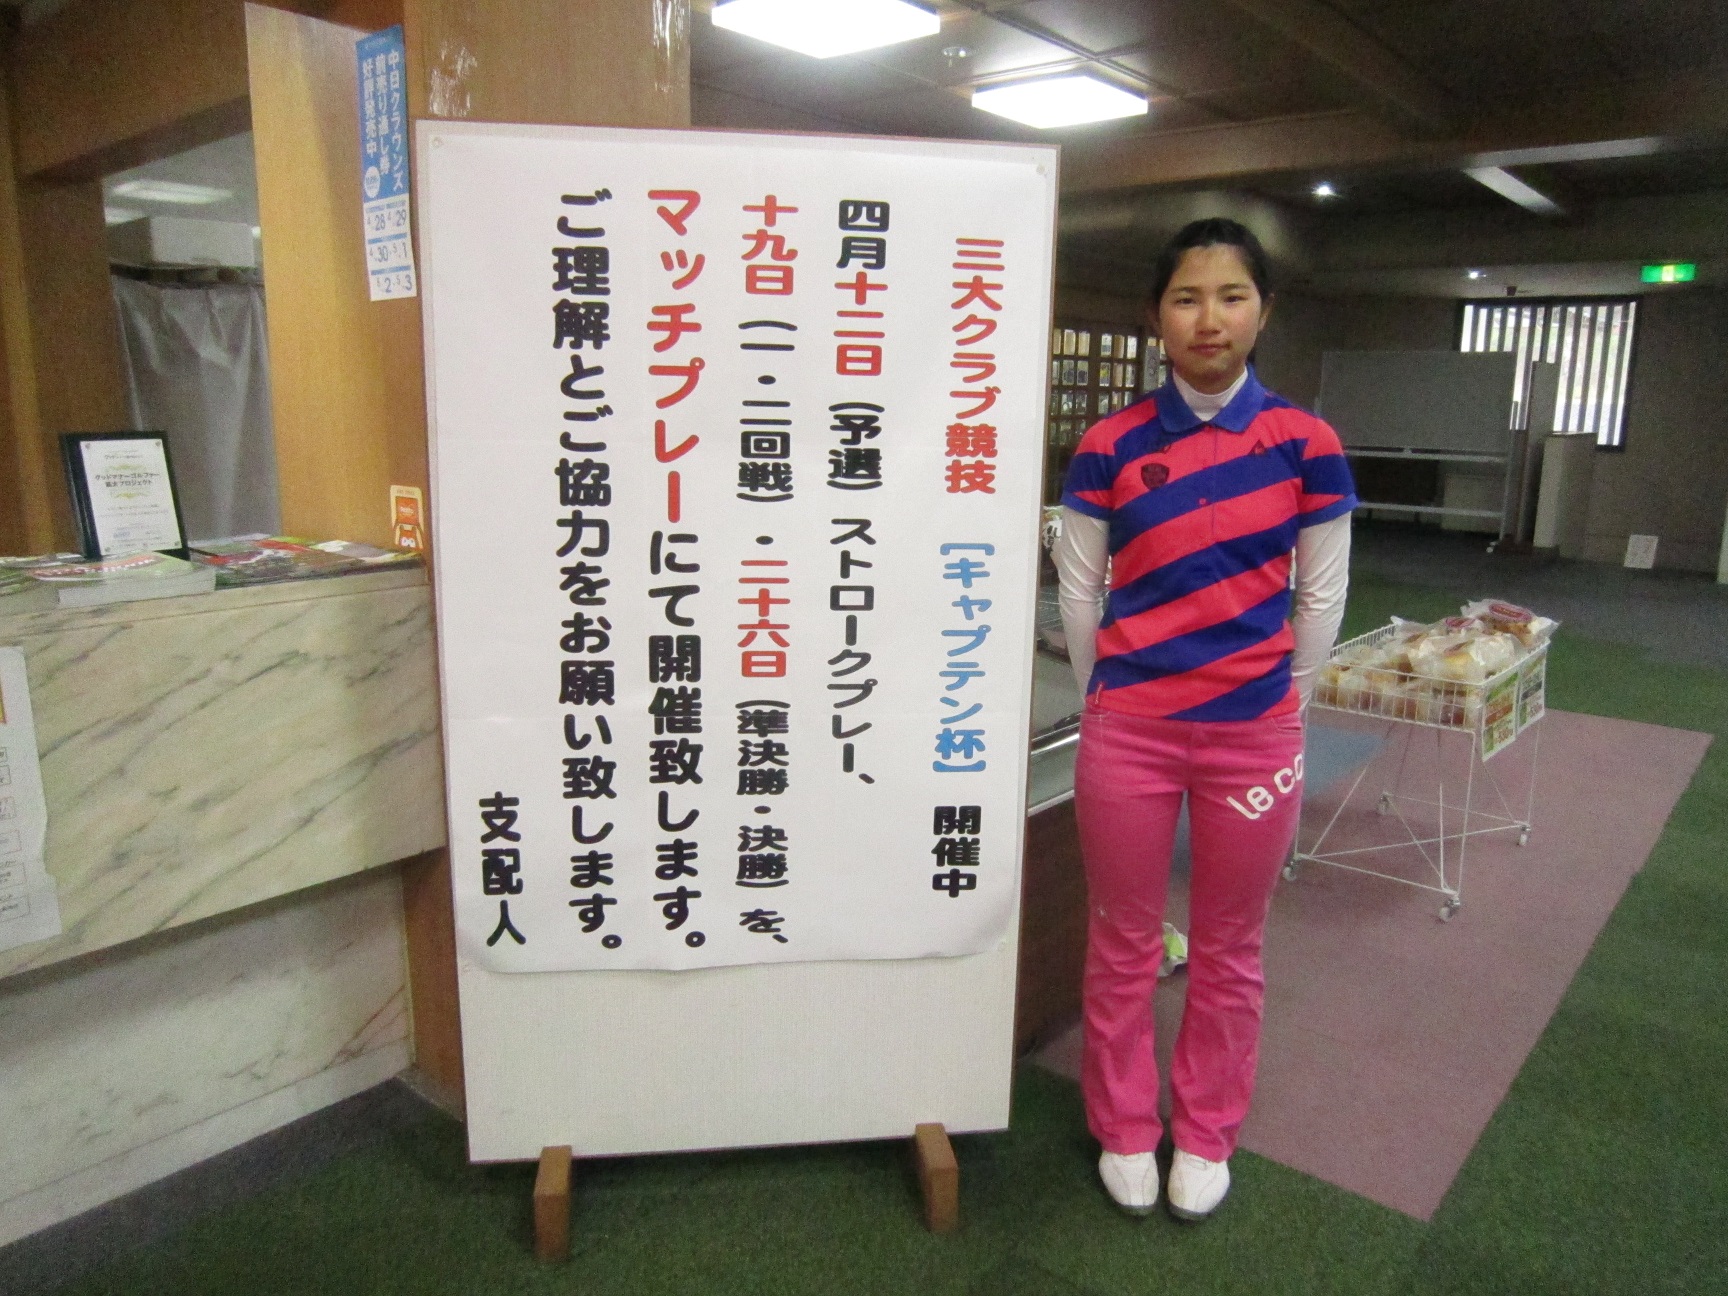 三大クラブ競技 【キャプテン杯】 開催中
四月十二日（予選）ストロークプレー、
十九日（一・二回戦）・二十六日（準決勝・決勝）を、
マッチプレーにて開催致します。
ご理解とご協力をお願い致します。
支配人
中日クラウンズ
前売り通し券
好評発売中
4.28 4.29
4.30 5.1
5.2 5.3
グッドマナーゴルファー
le co